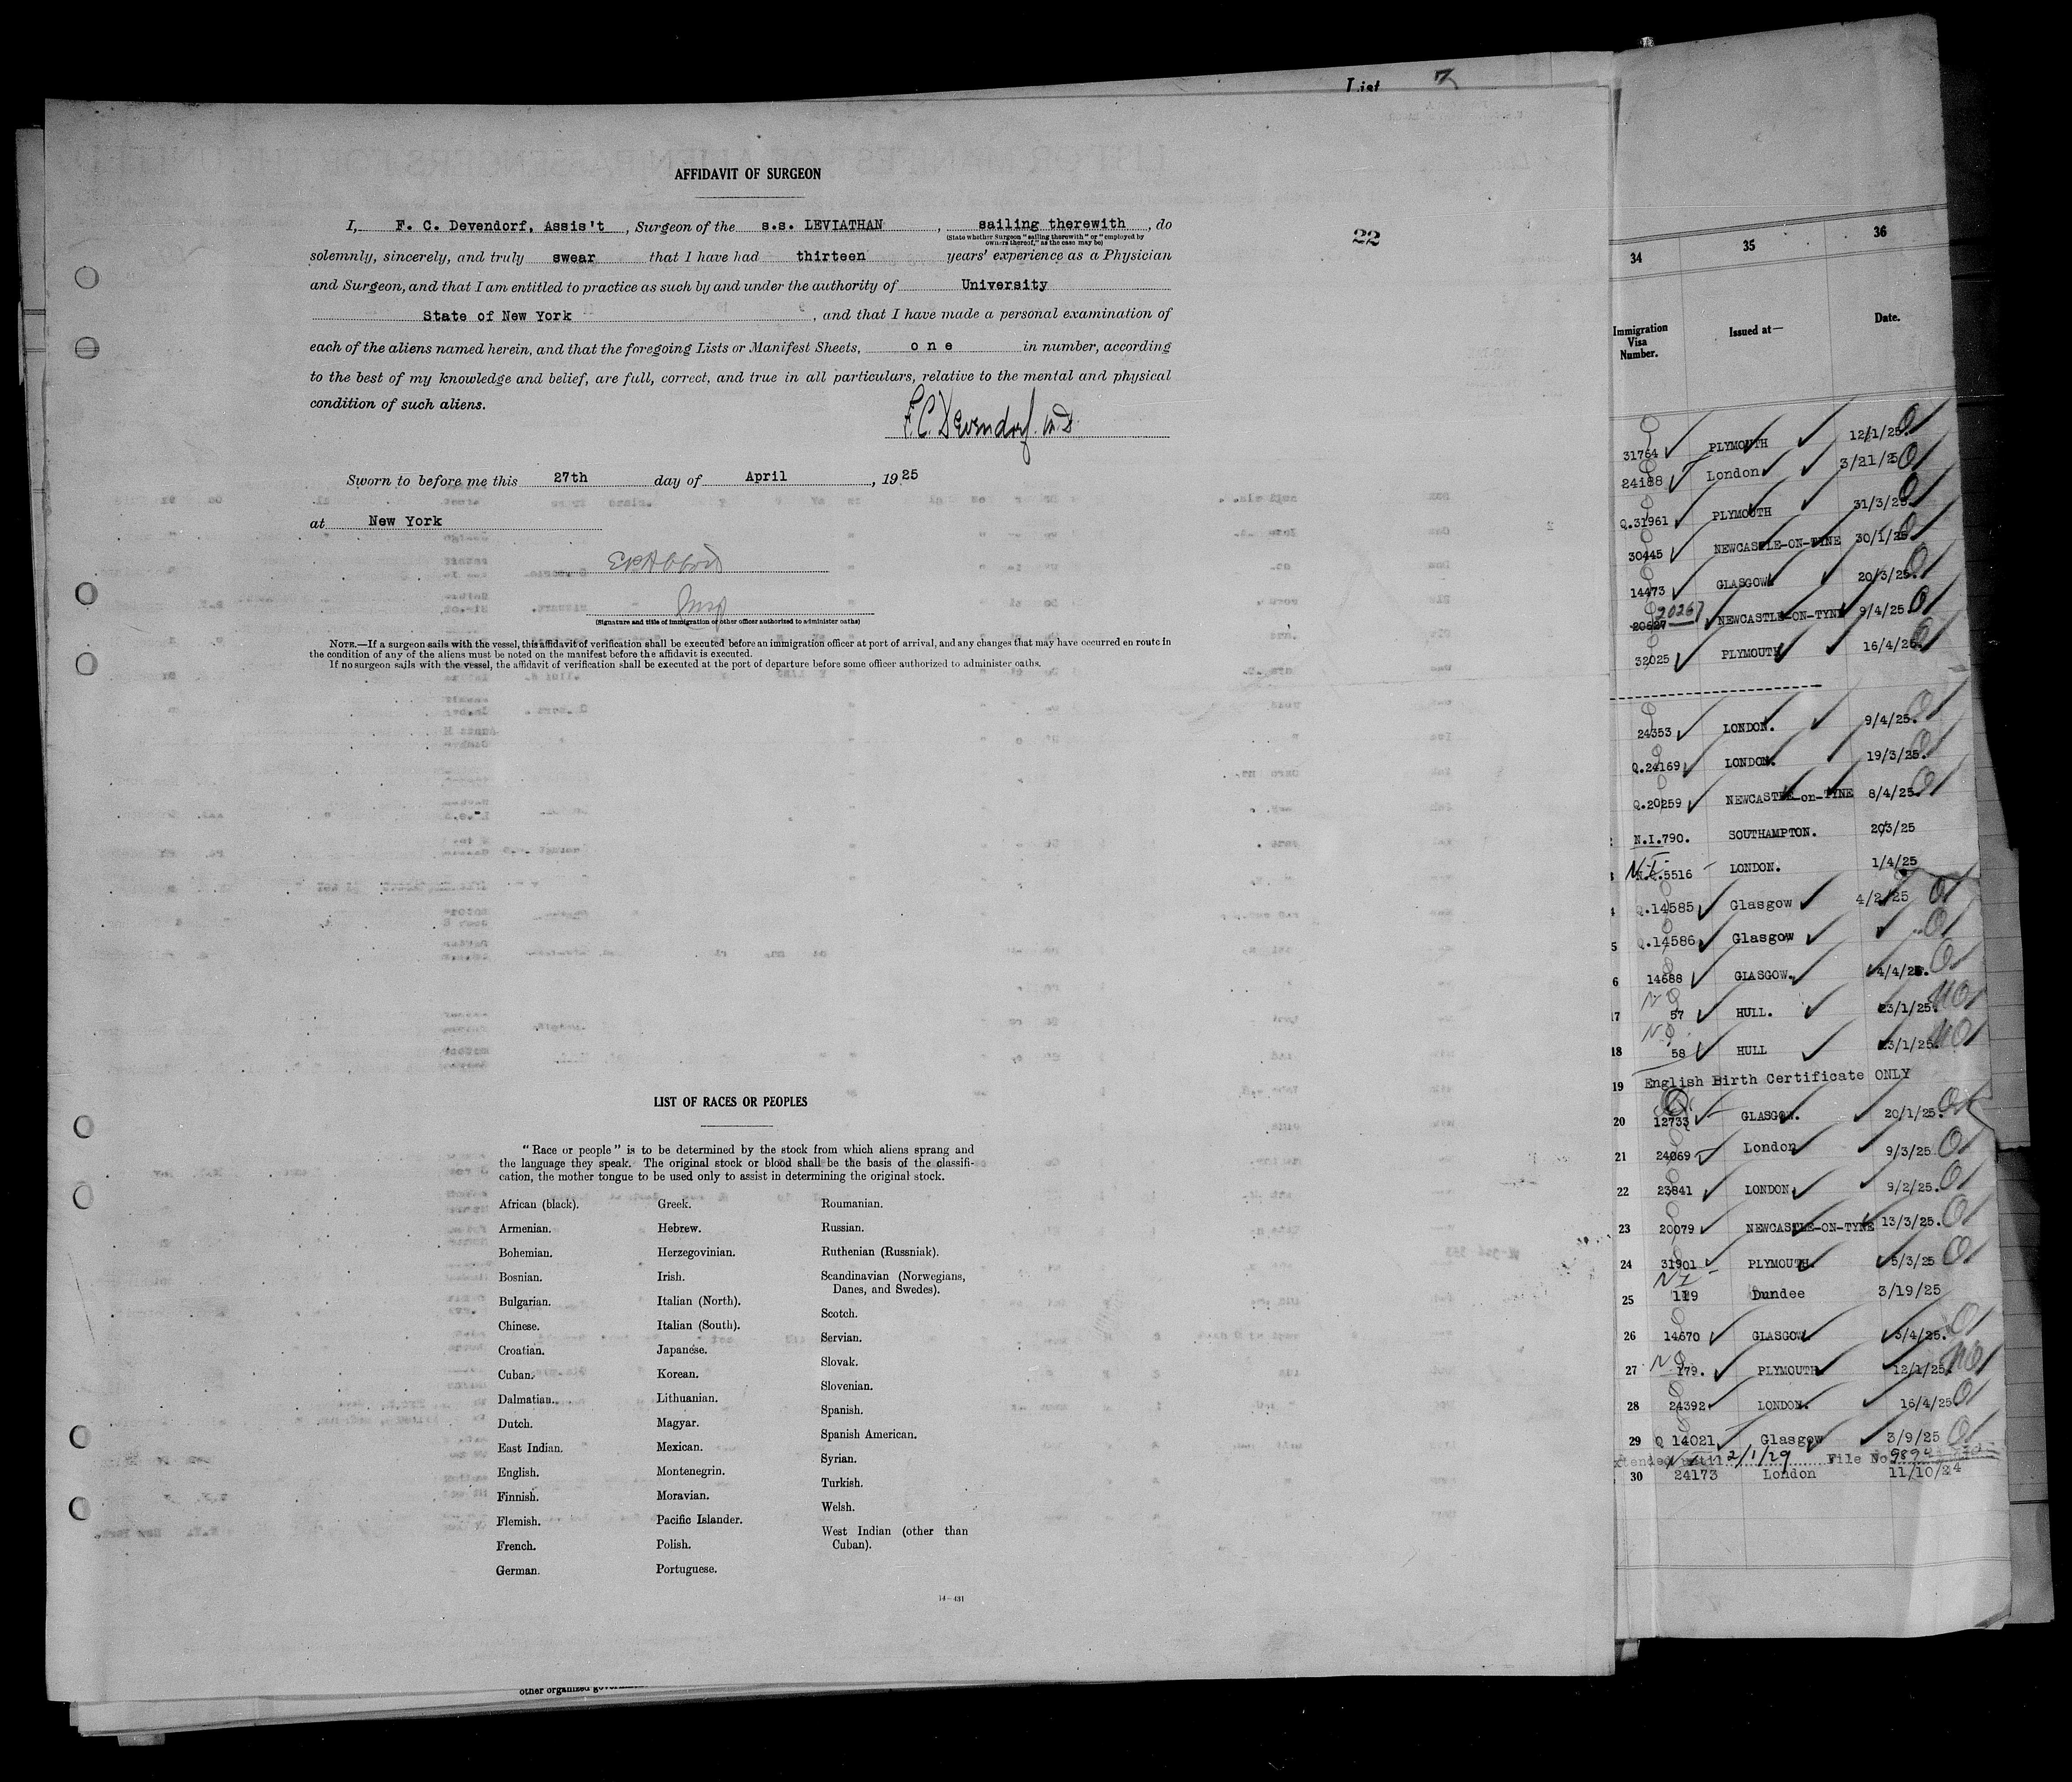 List 7
AFFIDAVIT OF SURGEON
I, F. C. Devendorf, Assis't , Surgeon of the s.s. LEVIATHAN , sailing therewith , do
(State whether Surgeon "sailing therewith" or "employed by
owners thereof," as the case may be)
22
solemnly, sincerely, and truly swear that I have had thirteen years' experience as a Physician
and Surgeon, and that I am entitled to practice as such by and under the authority of University
State of New York , and that I have made a personal examination of
each of the aliens named herein, and that the foregoing Lists or Manifest Sheets, o n e in number, according
to the best of my knowledge and belief, are full, correct, and true in all particulars, relative to the mental and physical
condition of such aliens.
F. C. Devendorf. M.D.
Sworn to before me this 27th day of April , 1925
at New York
Insp
(Signature and title of immigration or other officer authorized to administer oaths)
NOTE.—If a surgeon sails with the vessel, this affidavit of verification shall be executed before an immigration officer at port of arrival, and any changes that may have occurred en route in
the condition of any of the aliens must be noted on the manifest before the affidavit is executed.
If no surgeon sails with the vessel, the affidavit of verification shall be executed at the port of departure before some officer authorized to administer oaths.
LIST OF RACES OR PEOPLES
"Race or people" is to be determined by the stock from which aliens sprang and
the language they speak. The original stock or blood shall be the basis of the classifi-
cation, the mother tongue to be used only to assist in determining the original stock.
African (black).
Armenian.
Bohemian.
Bosnian.
Bulgarian.
Chinese.
Croatian.
Cuban.
Dalmatian.
Dutch.
East Indian.
English.
Finnish.
Flemish.
French.
German.
Greek.
Hebrew.
Herzegovinian.
Irish.
Italian (North).
Italian (South).
Japanese.
Korean.
Lithuanian.
Magyar.
Mexican.
Montenegrin.
Moravian.
Pacific Islander.
Polish.
Portuguese.
Roumanian.
Russian.
Ruthenian (Russniak).
Scandinavian (Norwegians,
Danes, and Swedes).
Scotch.
Servian.
Slovak.
Slovenian.
Spanish.
Spanish American.
Syrian.
Turkish.
Welsh.
West Indian (other than
Cuban).
14—431
other organized
34 35 36
Immigration
Visa
Number.
Issued at—
Date.
31764 PLYMOUTH 12/1/25.
24188 London 3/21/25
Q.31961 PLYMOUTH 31/3/25.
30445 NEWCASTLE-ON-TYNE 30/1/25
14473 GLASGOW 20/3/25.
20267
20627 NEWCASTLE-ON-TYNE 9/4/25.
32025 PLYMOUTH 16/4/25.
24353 LONDON. 9/4/25.
Q.24169 LONDON. 19/3/25.
Q.20259 NEWCASTLE-on-TYNE 8/4/25.
N.I.790. SOUTHAMPTON. 20/3/25
N.I. 5516 LONDON. 1/4/25
Q.14585 Glasgow 4/2/25
5 Q.14586 Glasgow
6 14688 GLASGOW. 4/4/25.
17 NQ 57 HULL. 23/1/25. NQ
18 NQ 58 HULL 23/1/25. NQ
19 English Birth Certificate ONLY
20 12733 GLASGOW. 20/1/25.
21 24069 London 9/3/25
22 23841 LONDON 9/2/25.
23 20079 NEWCASTLE-ON-TYNE 13/3/25.
24 31901 PLYMOUTH. 5/3/25
25 NI 119 Dundee 3/19/25
26 14670 GLASGOW 3/4/25.
27 NQ 179. PLYMOUTH 12/1/25. NQ
28 24392 LONDON. 16/4/25
29 Q 14021 Glasgow 3/9/25
xtended until 2/1/29 File No.
30 24173 London 11/10/24